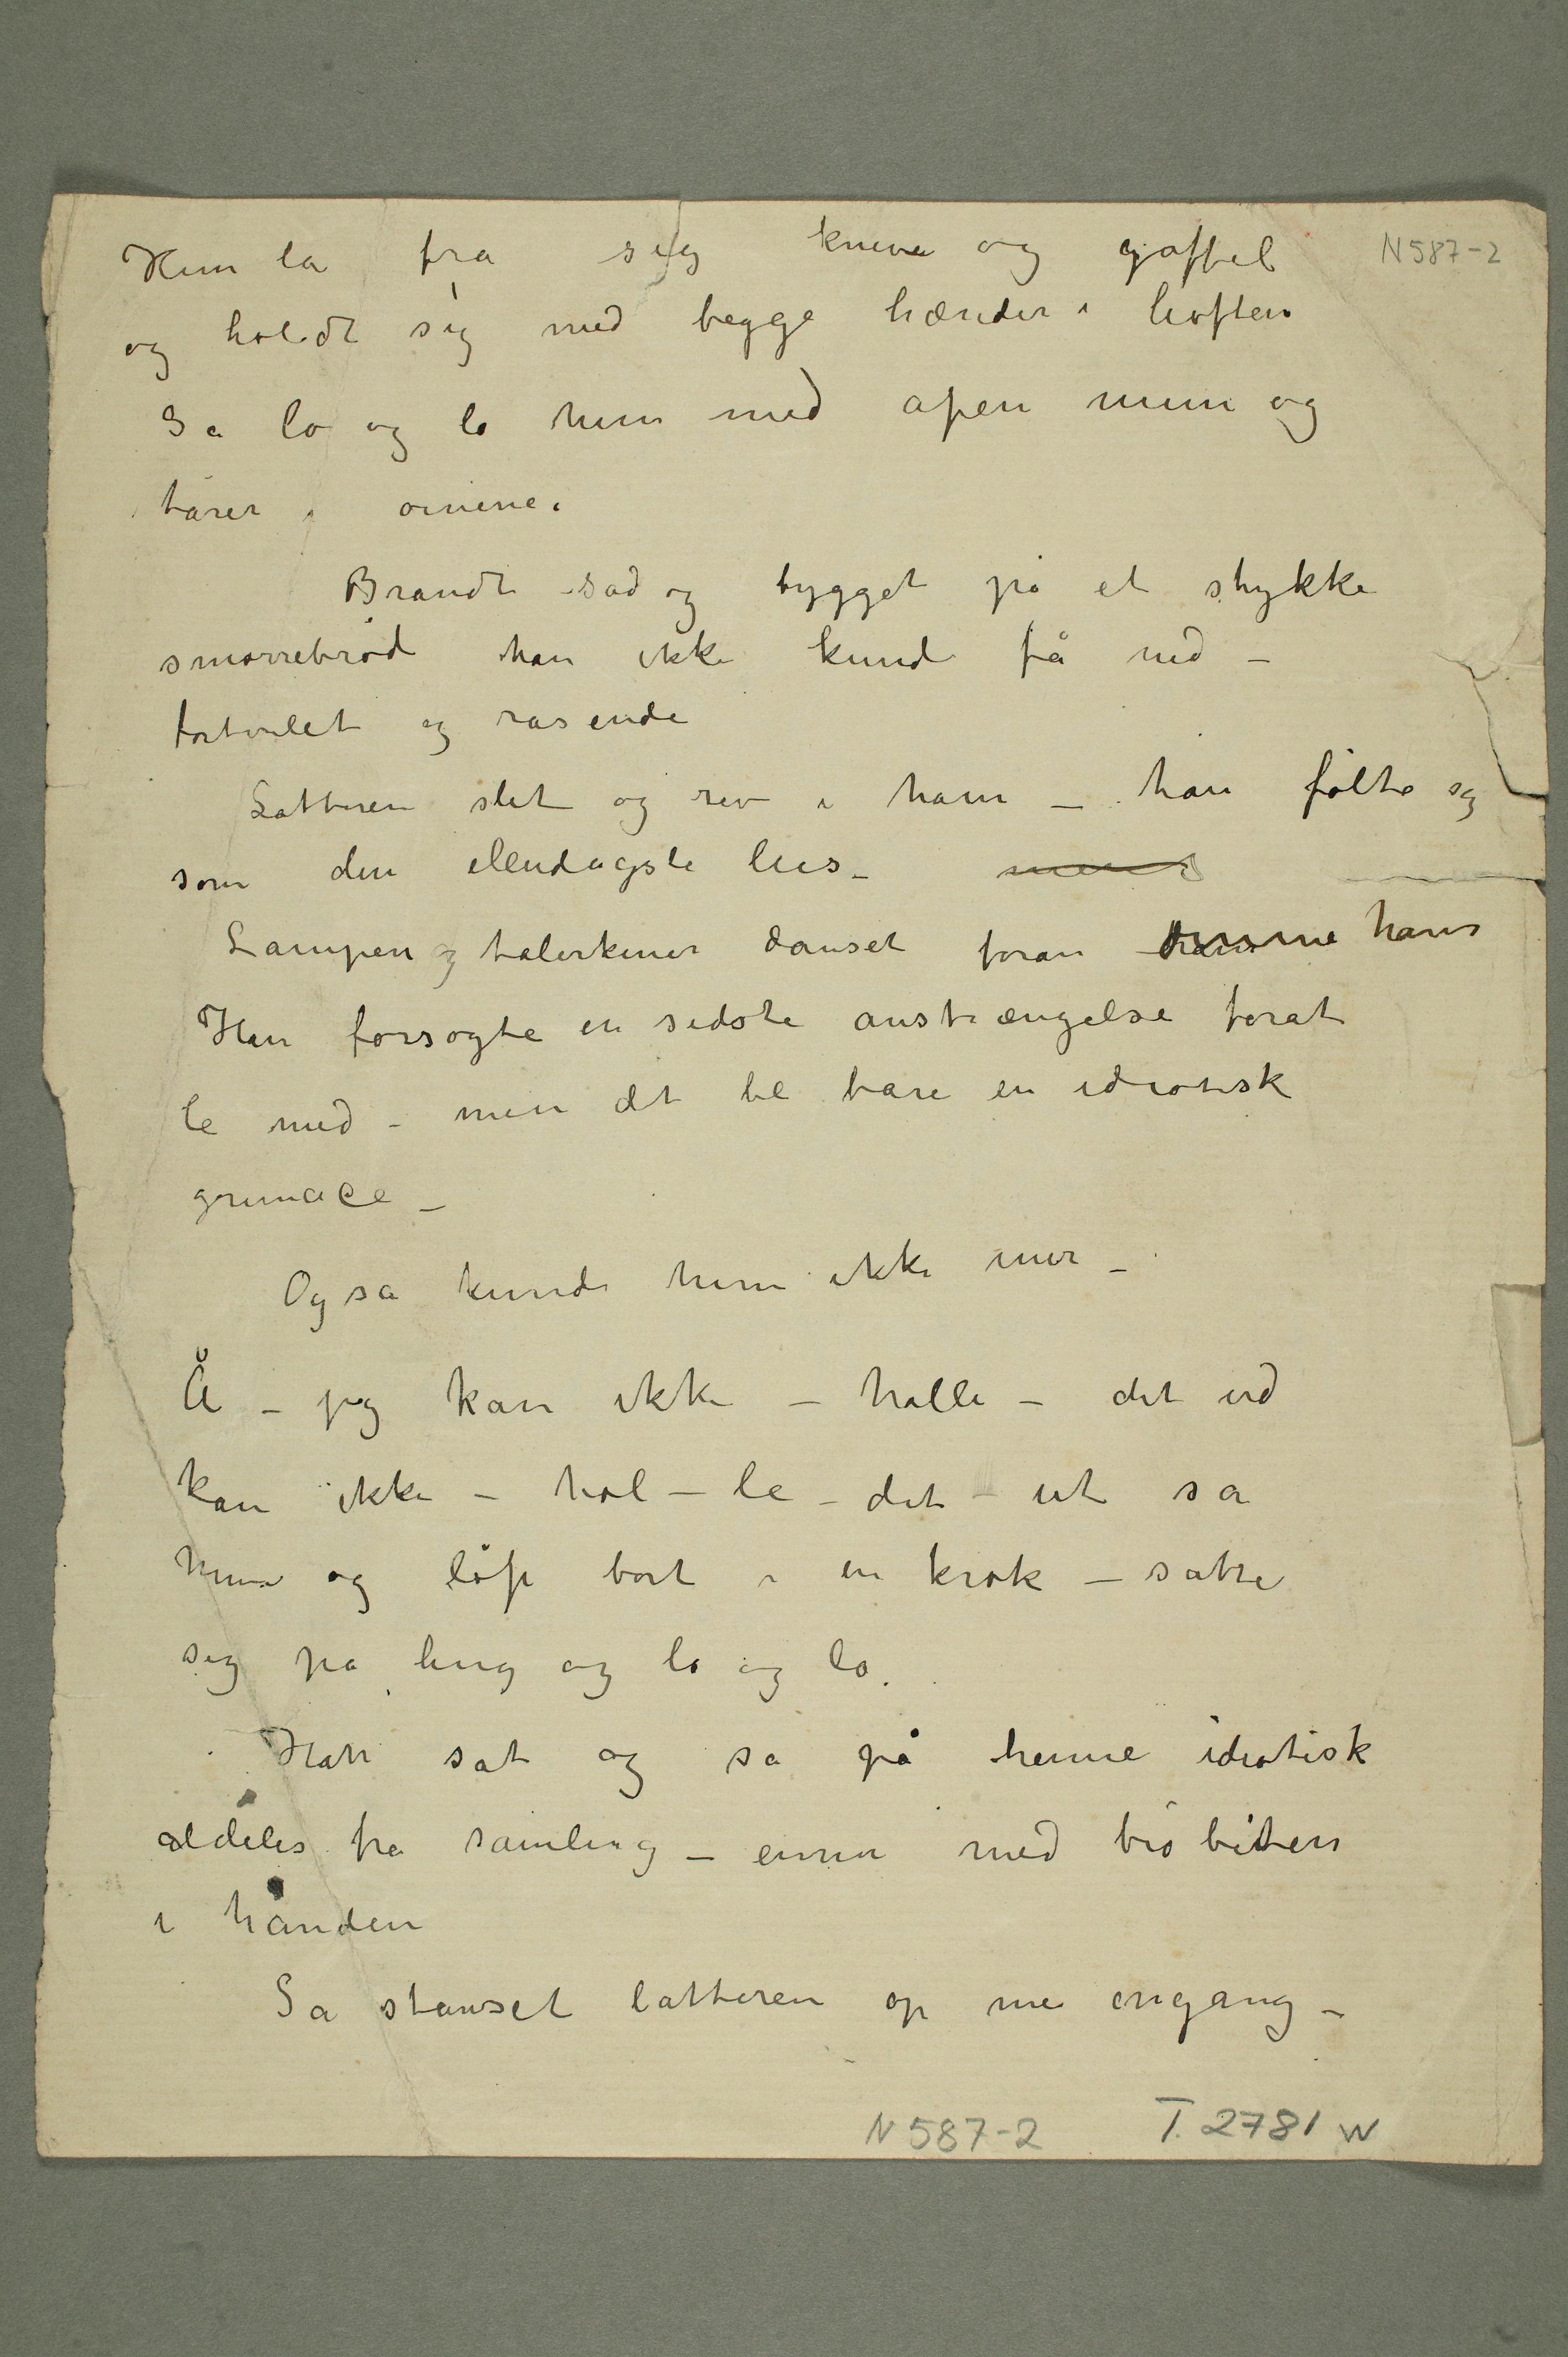 Hun la fra sig kniven og gaffel N587-2
og holdt sig med begge hænder i hoften
Så lo og lo hun med åpen mun og
tårer i øinene.
Brandt sad og tygget på et stykke
smørrebrød han ikke kunde få ned –
fortvilet og rasende
Latteren slet og rev i ham – han følte sig
som den elendigste lus –
Lampen og talerkener danset foran øinene hans
Han forsøgte en sidste anstrængelse forat
le med – men det ble bare en idiotisk
grimace –
Og så kunde hun ikke mer –
Å – jeg kan ikke – holle – det ud
kan ikke – hol – le – det – ut sa
hun og løp bort i en krok – satte
sig på hug og lo og lo.
Han sat og så på henne idiotisk
aldeles fra samling – ennu med brøbiten
i hånden
Så stanset latteren op me engang –
N 587-2 T. 2781 W